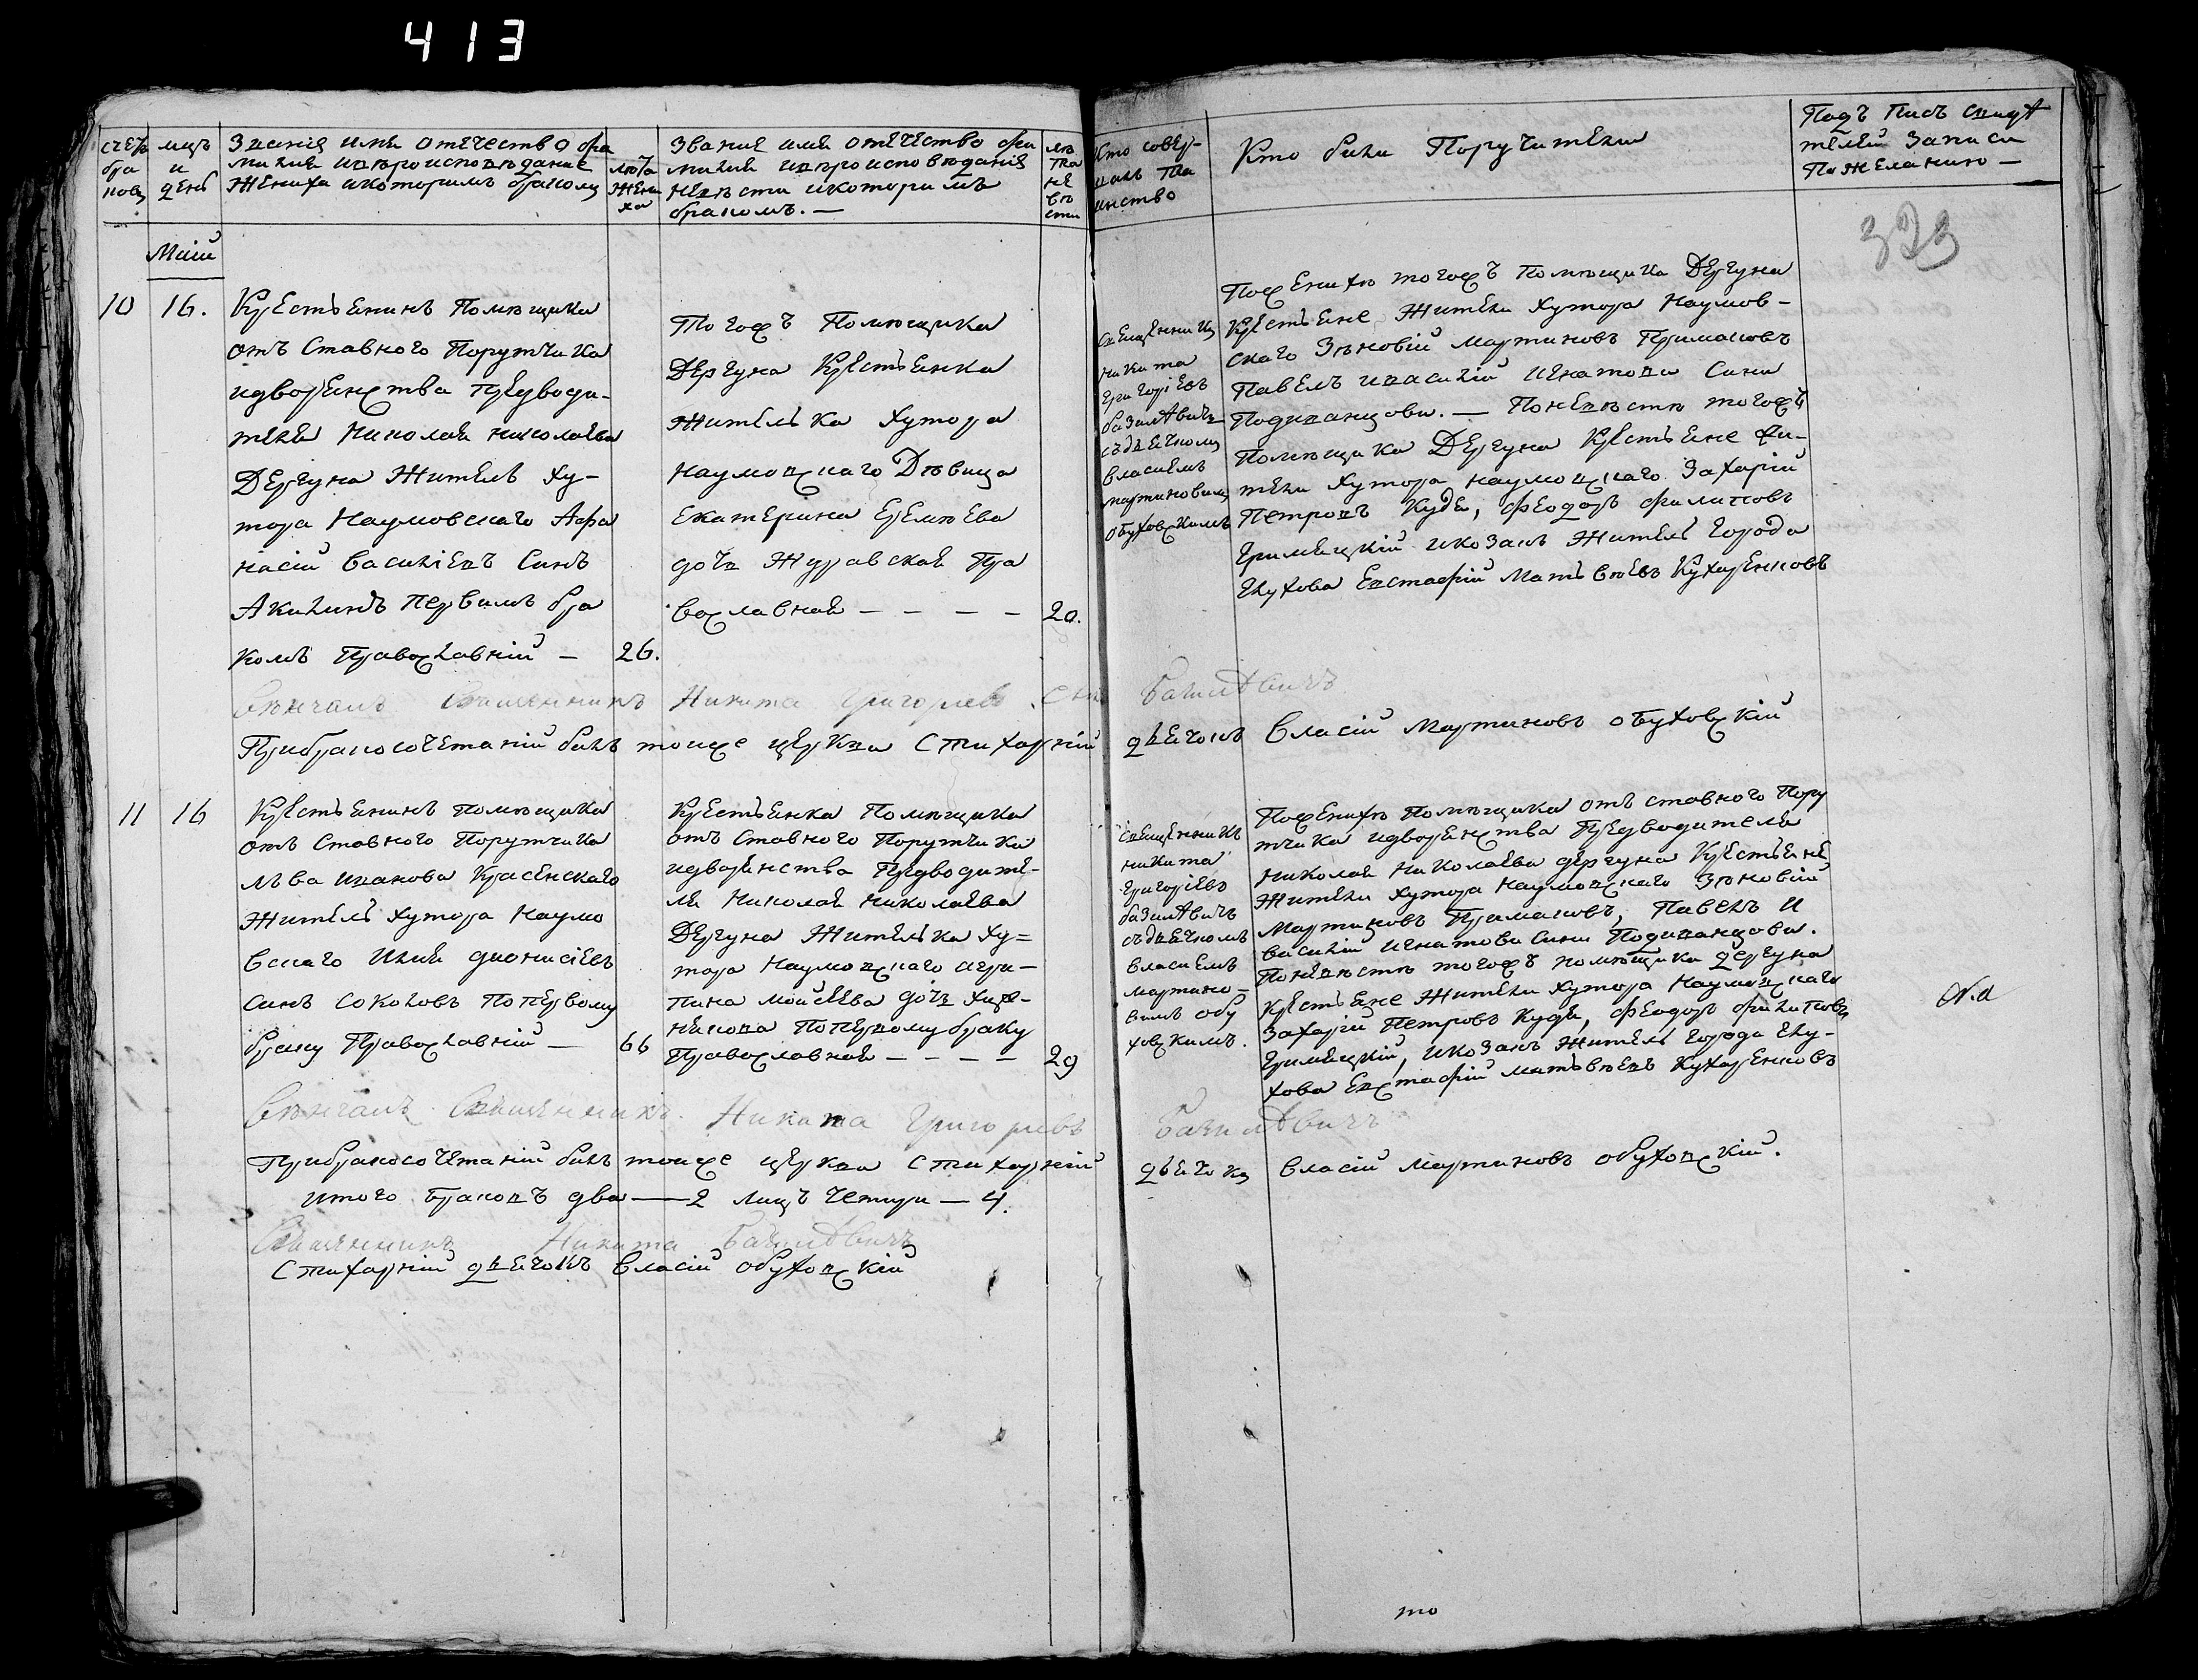 413
счетъ
бра
ковъ
мцъ
и
день
Званія имя отечество фа
милия ивѣроисповѣдание
жениха икоторимъ бракомъ
лѣта
жени
ха
Звание имя отечество фа
милия ивѣроисповѣдания
невѣсти икоторимъ
бракомъ. —
лѣ
та
не
вѣ
сти
Кто совер-
шалъ таи
инство
Кто били Поручители
Подъ Писъ свидѣ
телей Записи
По желанию —
323
Маій
10
16.
Крестьянинъ Помѣщика
отъ Ставного Порутчика
идворянства предводи-
теля Николая николаева
Дергуна Житель Ху-
тора Наумовского Афа
насій василіевъ Синъ
Акилинъ первимъ бра
комъ Православній —
26.
Тогожъ Помѣщика
Дергуна Крестьянка
жителька хутора
наумовскаго Дѣвица
Екатерина Еремѣева
дочъ Журавская Пра
вославная — — — —
20.
священникъ
никита
григоріевъ
базилѣвичъ
съдьячкомъ
власиемъ
мартиновимъ
обуховскимъ
Поженихѣ тогожъ помѣщика Дергуна
Крестьяне Жители хутора Наумов-
скаго Зѣновій мартиновъ Примаковъ
Павелъ ивасилій Игнатови Сини
Подиванцови. — Поневѣстѣ тогожъ
Помѣщика Дергуна Крестьяне жи-
тели хутора наумовскаго Захарій
Петровъ Кудя, Феодоръ филиповъ
Гримяцкій икозакъ житель города
глухова Евстафій Матьвѣевъ Кухаренковъ
Вѣнчалъ Священникъ Никита Григориевъ Синъ Базилѣвичъ
Прибракосочетаній билъ тоижe церкви Стихарній дьячокъ Власій Мартиновъ обуховскій
11
16
Крестьянинъ помѣщика
отъ Ставного Порутчика
льва иванова Красенскаго
житель хутора Наумо
вскаго Илия дионисіевъ
синъ Соколовъ Попервому
браку Православній —
66
Крестьянка Помѣщика
отъ Ставного Порутчика
идворянства Предводите-
ля Николая николаева
Дергуна Жителька ху=
тора Наумовскаго агри-
пина моисеева дочъ
Попервому браку
Православная — — — —
29
священникъ
никита
григоріевъ
базилѣвичъ
съдьячкомъ
власиемъ
мартино-
вимъ обу
ховскимъ.
Поженихѣ Помѣщика отъ ставного Пору
тчика идворянства Предводителя
николая николаева дергуна Крестьяне
жители хутора Наумовскаго Зѣновій
Мартиновъ Примаковъ, Павелъ и
василій игнатови сини Подиванцови.
Поневѣстѣ тогожъ помѣщика дергуна
Крестьяне жители хутора Наумовскаго
Захарій Петровъ Кудя, Феодоръ филиповъ
Гримяцкій, икозакъ житель города глу-
хова Евстафій матьвѣевъ Кухаренковъ
Вѣнчалъ Священникъ Никита Григориевъ Базилѣвичъ
Прибракосочетаній билъ тоиже церкви стихарній дьячокъ власій мартиновъ обуховскій.
итого браковъ два — 2 лицъ четири — 4.
Священникъ Никита Базилѣвичъ
Стихарній дьячокъ власій обуховскій
то